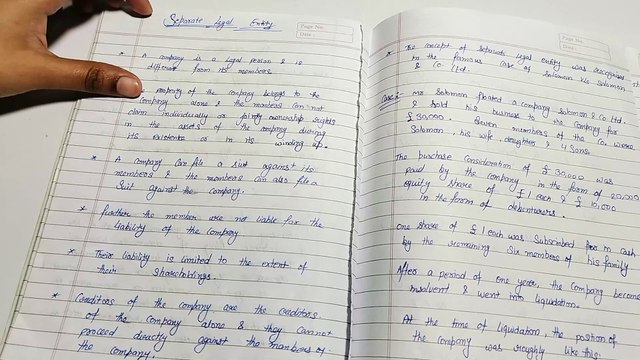 Separate Legal Entity
Page No.
Date
* A company is a legal person & is
different from its members
property of the company belongs to the
company alone & the members can not
claim individually or jointly ownership rights
in the assets of the company during
its existence or in its winding up.
* A company can file a suit against its
members & the members can also file a
suit against the company.
* Further the member are not liable for the
liability of the company
* Their liability is limited to the extent of
their shareholdings.
* Creditors of the company are the creditors
of the company alone & they cannot
proceed directly against the members of
the company.
Page No.
Date
* The concept of separate legal entity was recognised
in the famous case of Solomon v/s Solomon
& Co. Ltd.
Case:- Mr Solomon floated a company Solomon & Co. Ltd.
& sold his business to the company for
£ 30,000. Seven members of the co. were
Solomon, his wife, daughter & 4 sons.
The purchase consideration of £ 30,000 was
paid by the company in the form of 20,000
equity share of £ 1 each & £ 10,000
in the form of debentures.
One share of £ 1 each was subscribed for in cash
by the remaining six members of his family
After a period of one year, the company become
insolvent & went into liquidation.
At the time of liquidation, the position of
the company was roughly like this: